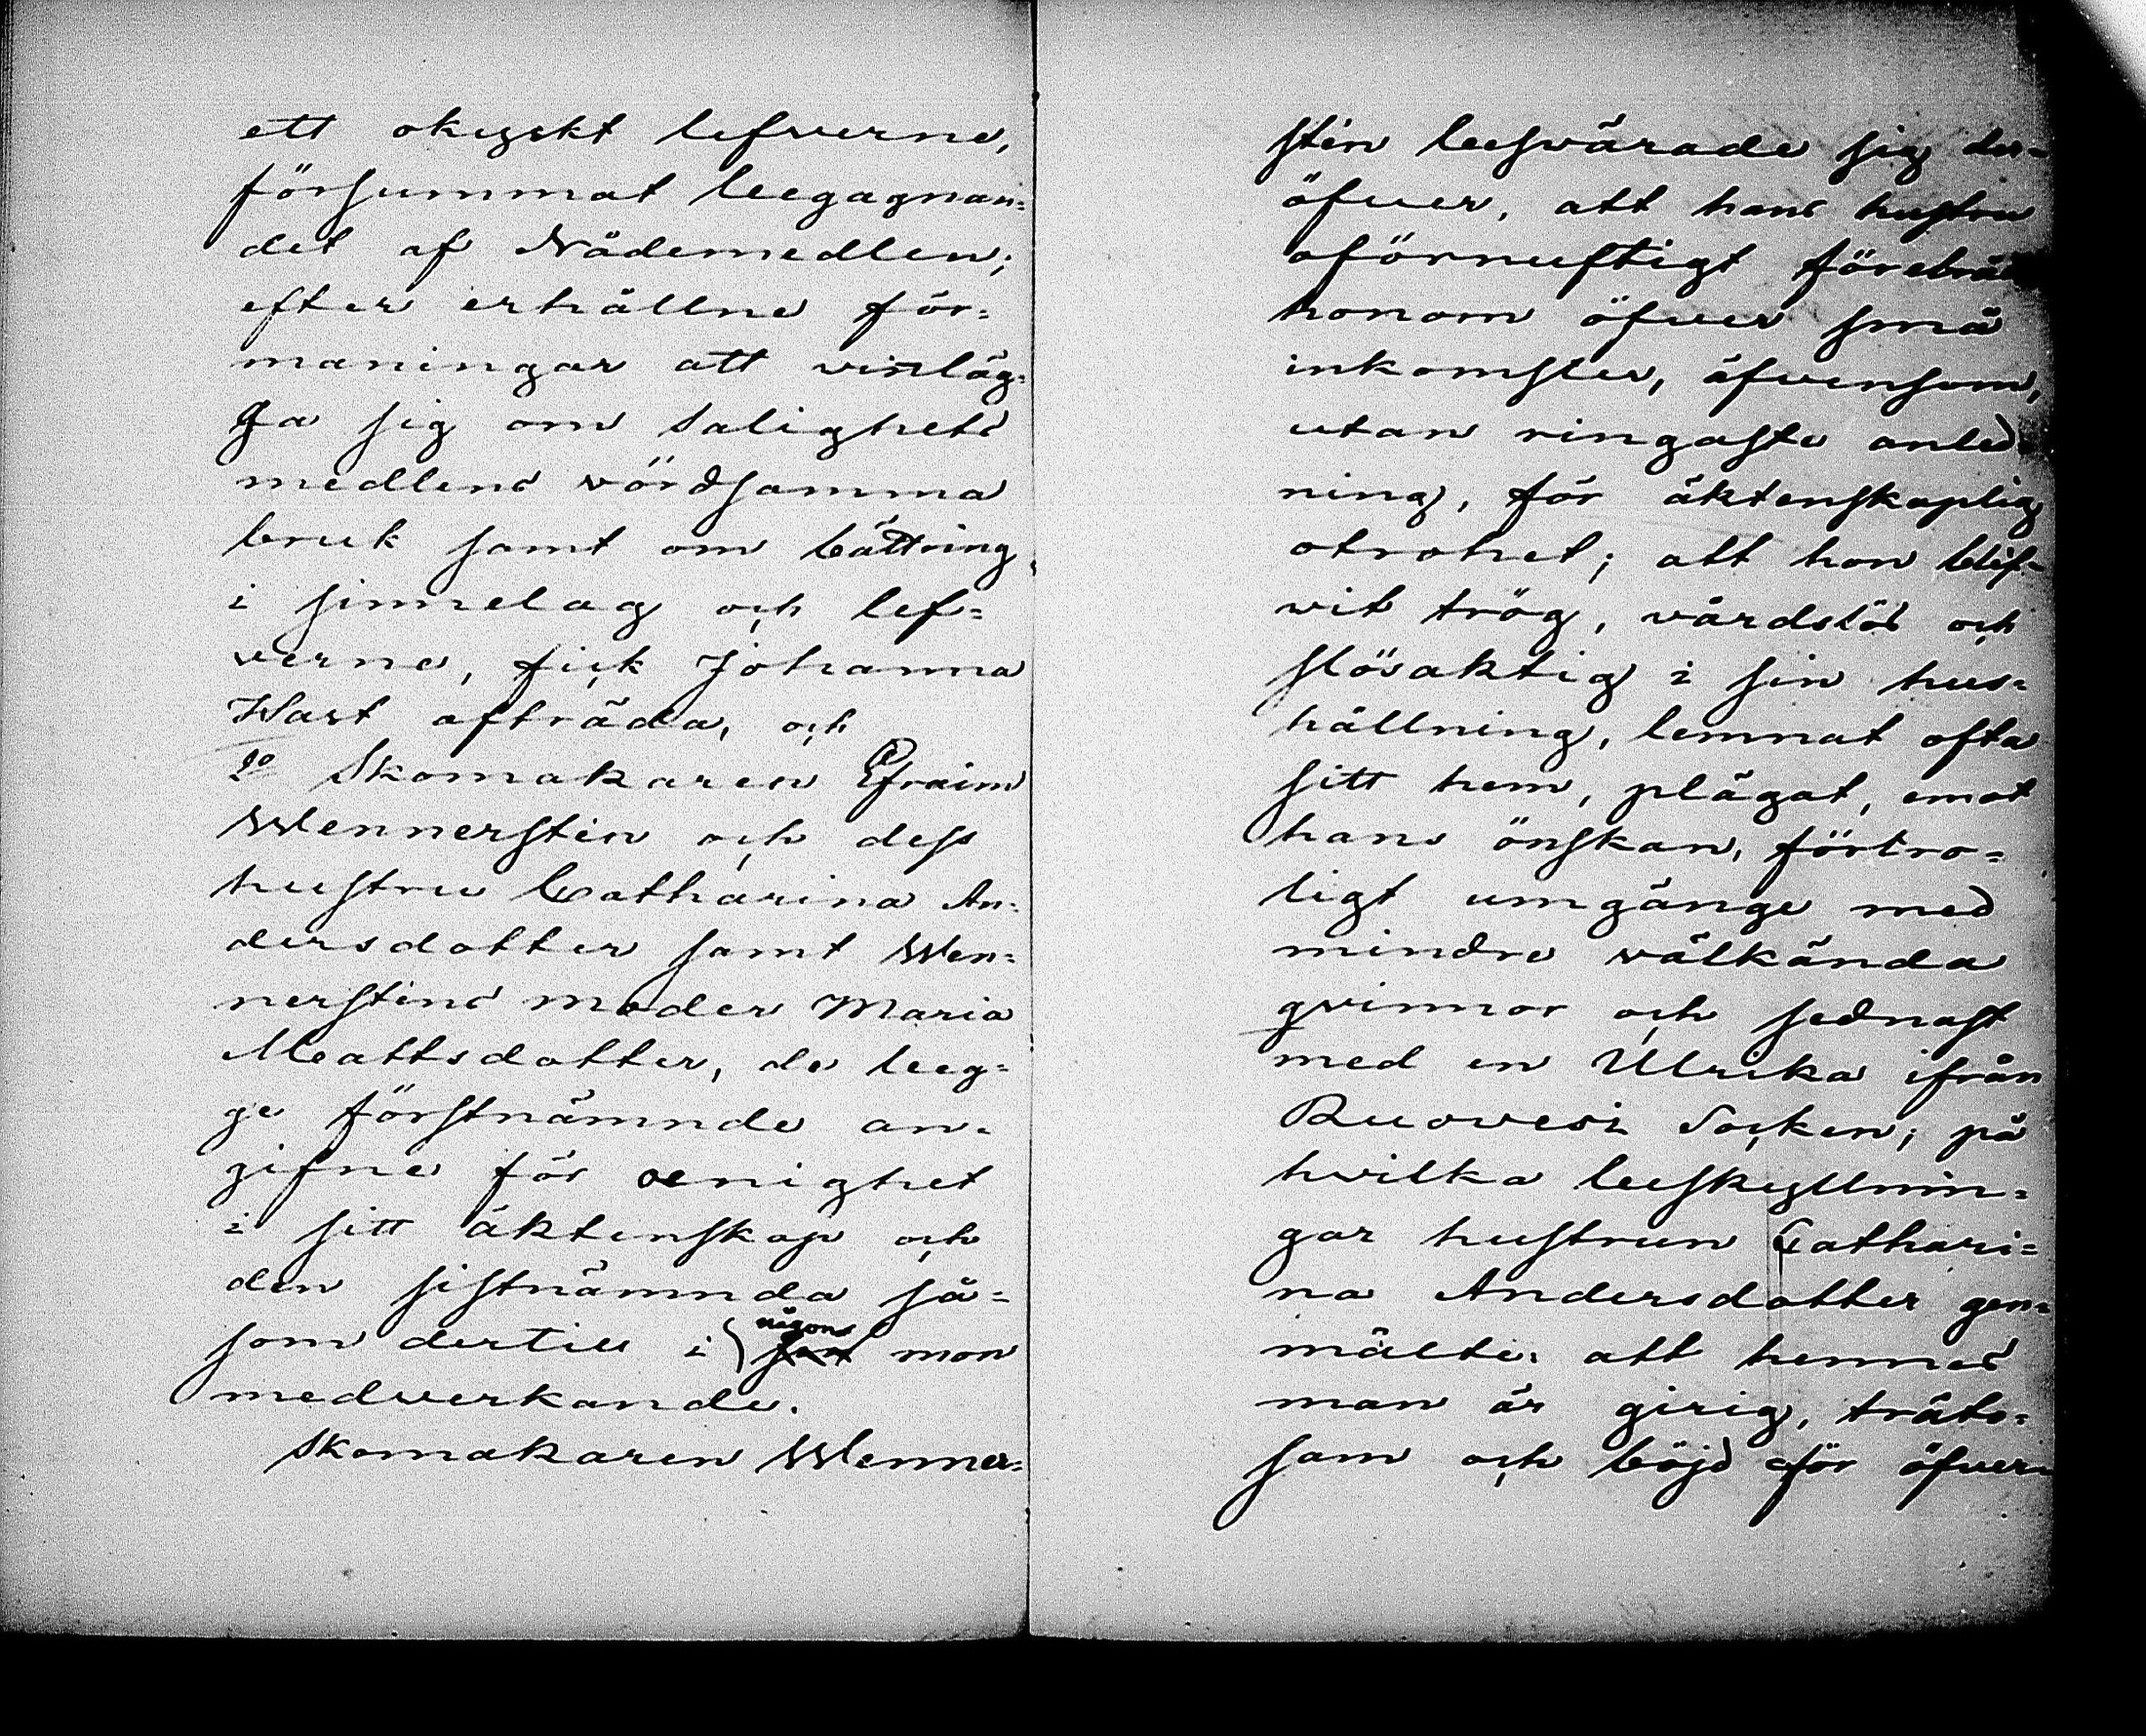 ett okyskt lefverne,
försummat begagnan=
det af Nådemedlen;
efter erhållne för=
maningar att vinläg=
ga sig om salighets
medlens vördsamma
bruk samt om bättring
i sinnelag och lef=
verne, fick Johanna
Wast afträda, och
2o Skomakaren Efraim
Wennerstén och dess
hustru Catharina An=
dersdotter samt Wen=
nersténs moder Maria
Mattsdotter, de beg=
ge förstnämnde an=
gifne för oenighet
i sitt äktenskap och
den sistnämnda så=
som dertill i någon mon
medverkande.
Skomakaren Wenner=
stén besvärade sig der=
öfver, att hans hustru
oförnuftigt förebrår
honom öfver små
inkomster, äfvensom,
utan ringaste anled=
ning, för äktenskaplig
otrohet; att hon blif=
vit trög, vårdslös och
slösaktig i sin hus=
hållning, lemnat ofta
sitt hem, plägat, emot
hans önskan, förtro=
ligt umgänge med
mindre välkända
qvinnor och sednast
med en Ulrika ifrån
Ruovesi Socken; på
hvilka beskyllnin=
gar hustrun Cathari=
na Andersdotter gen=
mälte, att hennes
man är girig, träto=
sam och böjd för öfver=